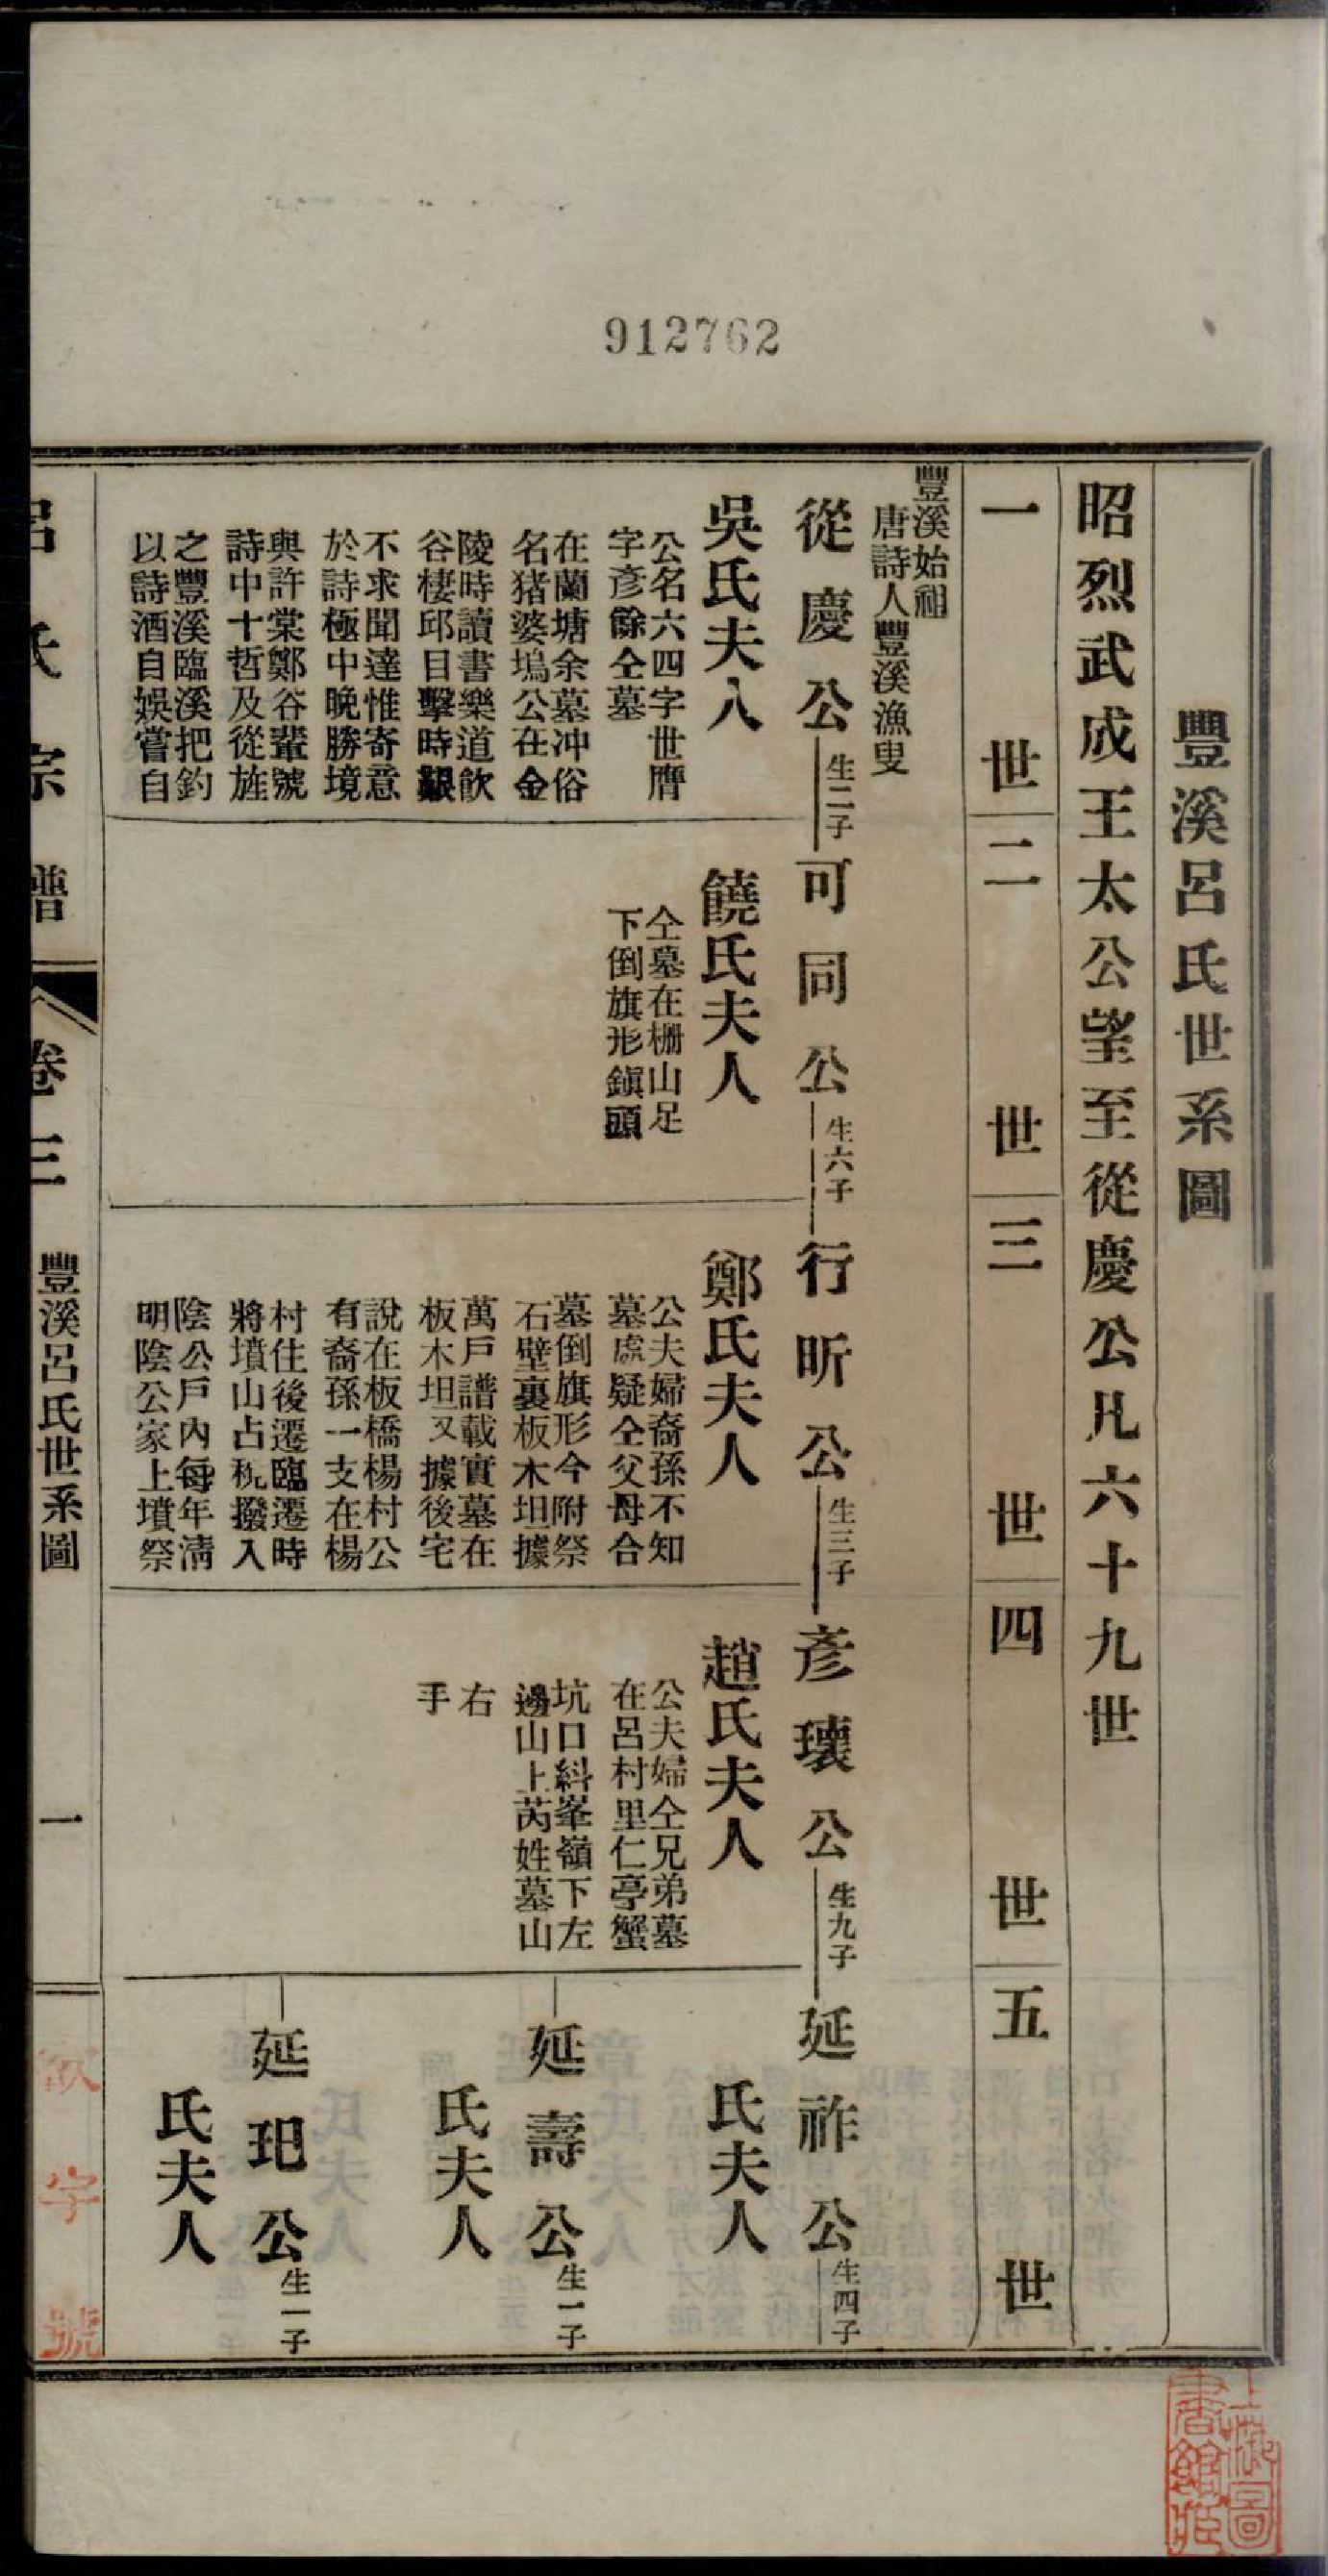 912762
豐溪呂氏世系圖
昭烈武成王太公望至從慶公凡六十九世
一世
二世
三世
四世
五世
豐溪始祖
唐詩人豐溪漁叟
從慶公
生二子
可同公
生六子
行昕公
生三子
彥瓌公
生九子
延祚公
生四子
吳氏夫人
公名六四字世膺
字彥餘仝墓
在蘭塘余墓冲俗
名猪婆塢公在金
陵時讀書樂道飲
谷棲邱目擊時艱
不求聞達惟寄意
於詩極中晚勝境
與許棠鄭谷輩號
詩中十哲及從旌
之豐溪臨溪把釣
以詩酒自娛嘗自
饒氏夫人
仝墓在柵山足
下倒旗形鎭頭
鄭氏夫人
公夫婦裔孫不知
墓處疑仝父母合
墓倒旗形今附祭
石壁裏板木坦據
萬戶譜載實墓在
板木坦又據後宅
說在板橋楊村公
有裔孫一支在楊
村住後遷臨遷時
將墳山占稅撥入
陰公戶內每年淸
明陰公家上墳祭
趙氏夫人
公夫婦仝兄弟墓
在呂村里仁亭蟹
坑口斜峯嶺下左
邊山上芮姓墓山
右
手
氏夫人
延壽公
生一子
氏夫人
延玘公
生一子
氏夫人
呂氏宗譜
卷三
豐溪呂氏世系圖
一
字號
上海圖書館藏